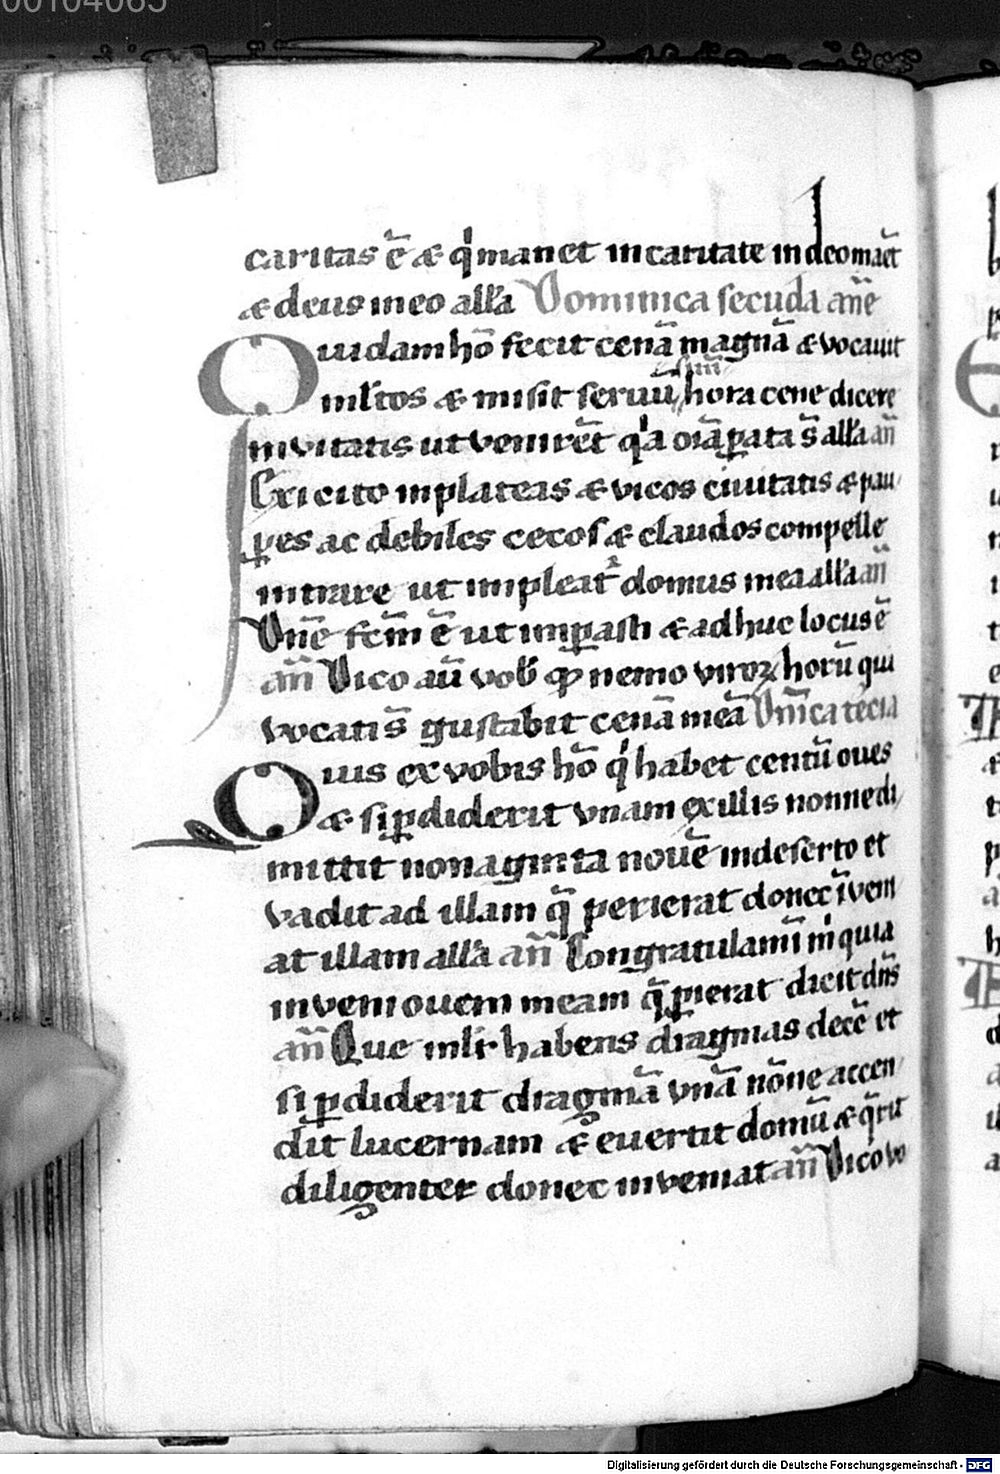 00104065
caritas ē & q̇ manet in caritate in deo maēt
& deus in eo alľa Dominica secūda añe
Quidam hō fecit cenā magnā & vocauit
mľtos & misit seruū suū hora cene dicere
invitatis ut venirēt q̇a oīa ꝑata s̄ alľa añ
Exi cito in plateas & vicos ciuitatis & pau
ꝑes ac debiles cecos & claudos compelle
intrare ut impleat᷑ domus mea alľa añ
Dñe fcm̄ ē ut imꝑasti & adhuc locus ē
añ Dico aū vob̄ ꝙ nemo viroꝝ horū qui
vocati s̄ gustabit cenā meā Dñica tēcia
Quis ex vobis hō q̇ habet centū oues
& si ꝑdiderit vnam ex illis nonne di
mittit nonaginta nouē in deserto et
vadit ad illam q̄ perierat donec īveni
at illam alľa añ Congratulamī ṁ quia
inveni ouem meam q̄ ꝑierat dicit dñs
añ Que mľr habens dragmas decē et
si ꝑdiderit dragmā vnā nōne accen
dit lucernam & euertit domū & q̄rit
diligenter donec inveniat añ Dico vo
Digitalisierung gefördert durch die Deutsche Forschungsgemeinschaft - DFG